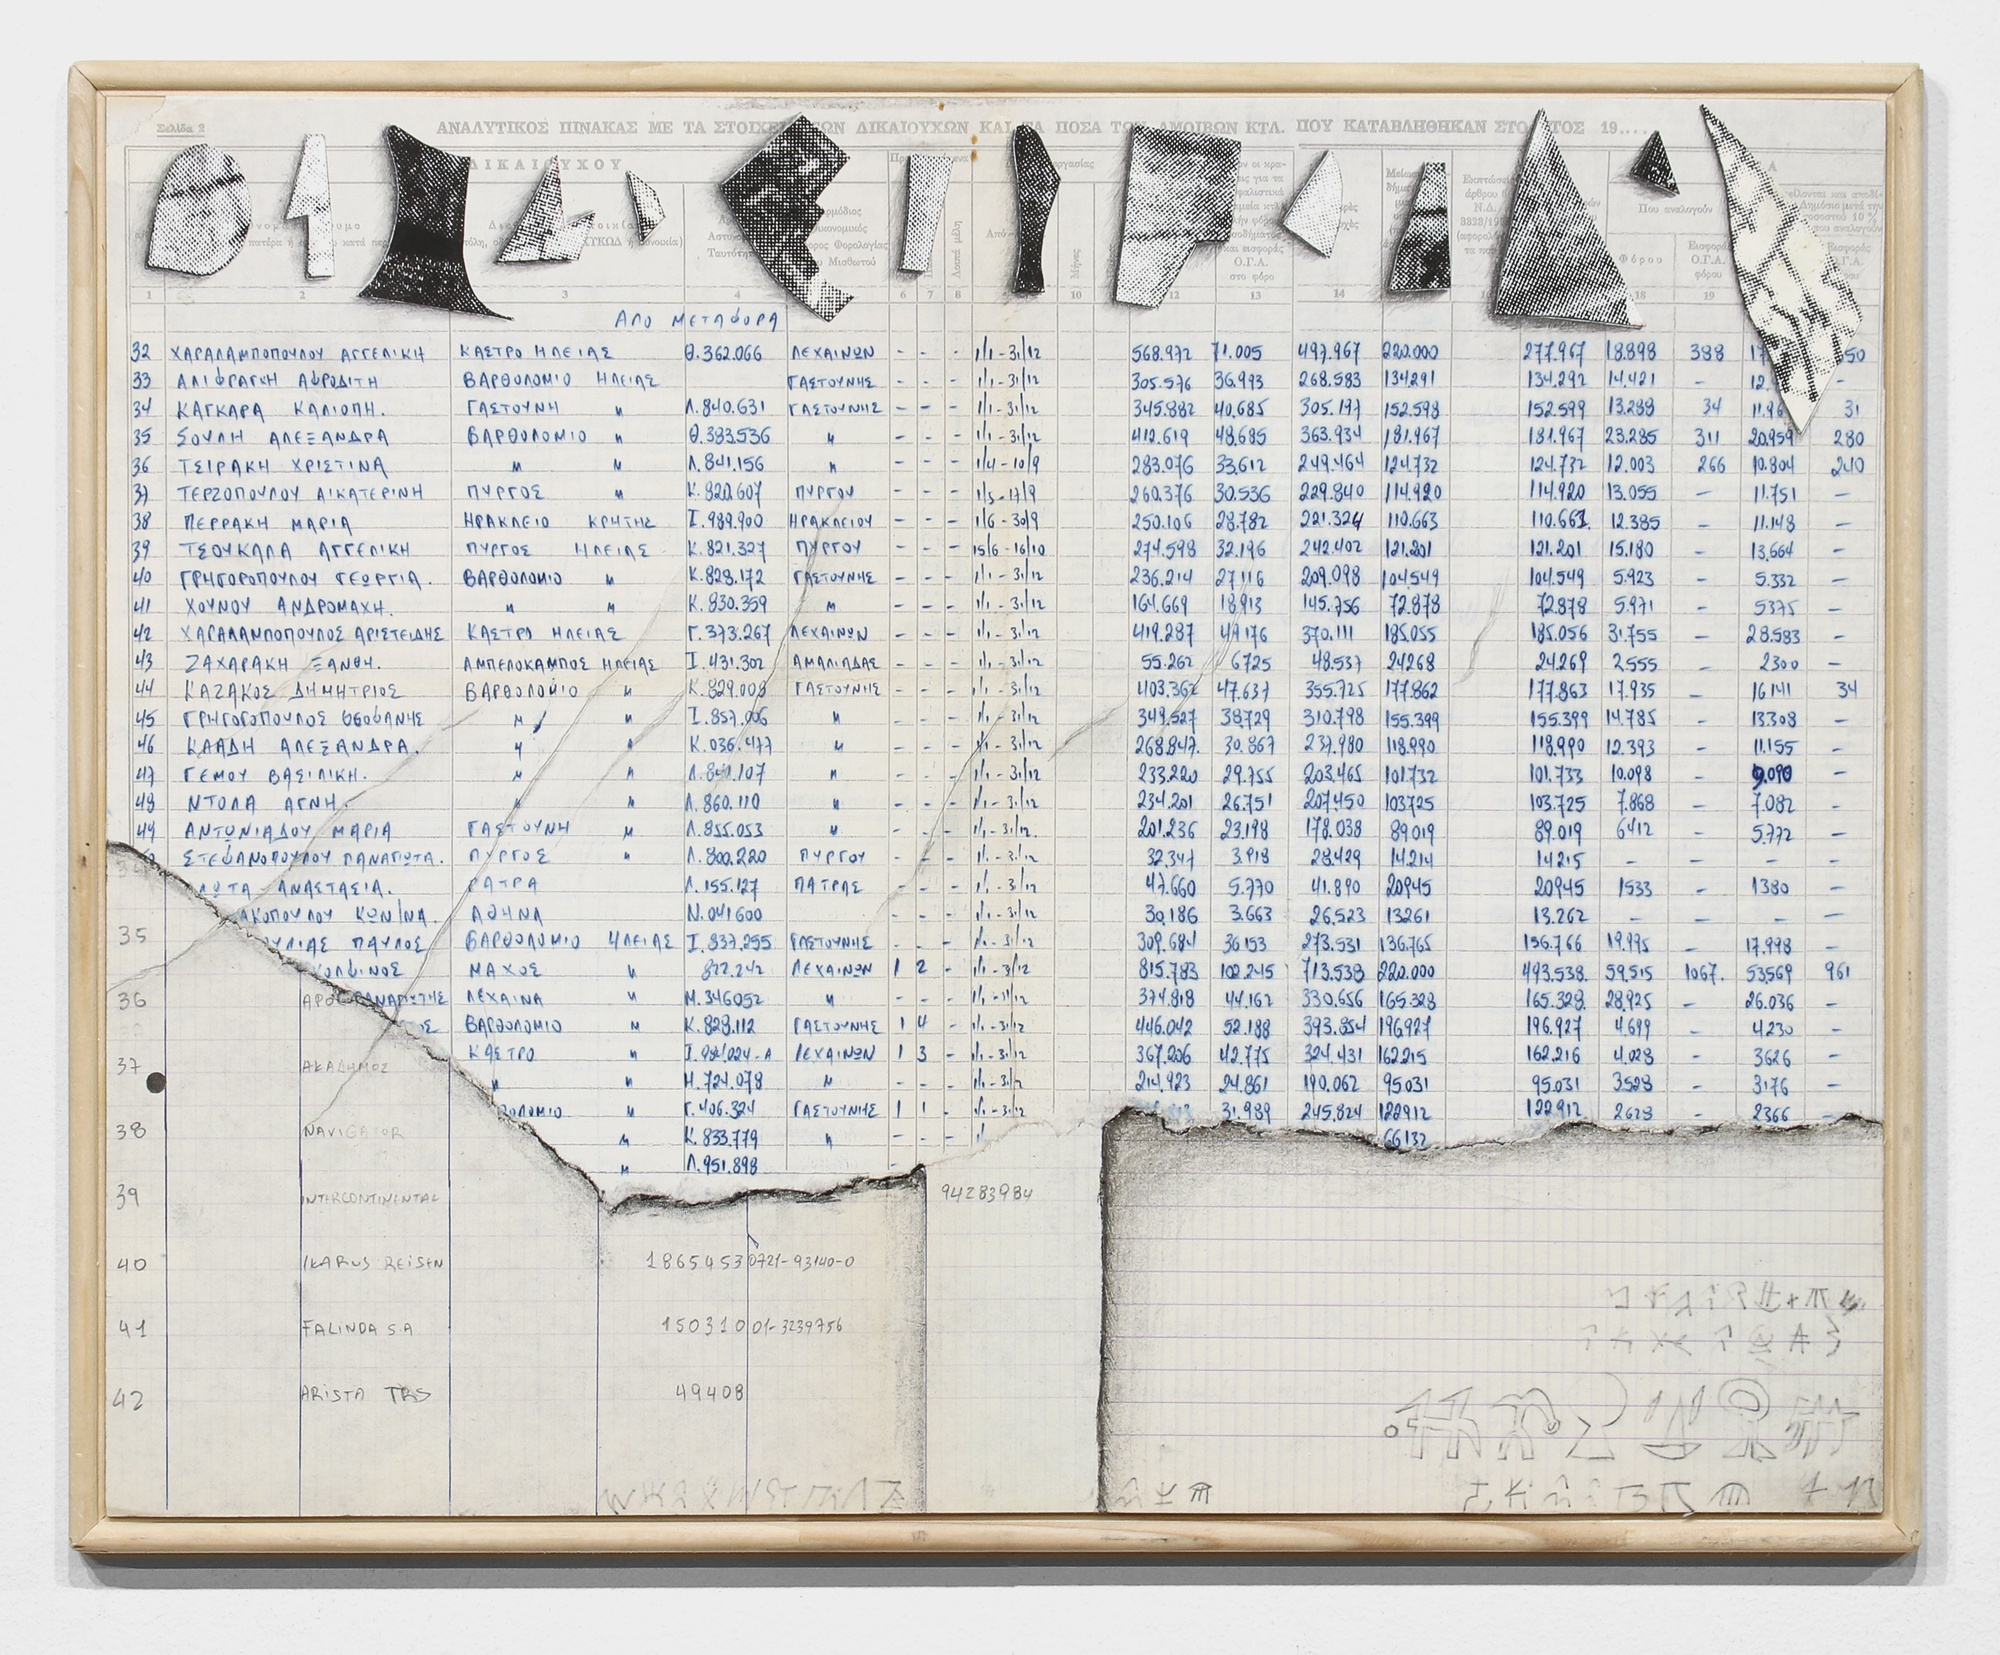 Σελίδα 2
ΑΝΑΛΥΤΙΚΟΣ ΠΙΝΑΚΑΣ ΜΕ ΤΑ ΤΩΝ ΔΙΚΑΙΟΥΧΩΝ ΚΑΙ ΠΟΣΑ ΑΜΟΙΒΩΝ ΚΤΛ. ΠΟΥ ΚΑΤΑΒΛΗΘΗΚΑΝ 19....
1 2 3 4 6 7 8 10 12 13 14 18 19
ΑΠΟ ΜΕΤΑΦΟΡΑ
32 ΧΑΡΑΛΑΜΠΟΠΟΥΛΟΥ ΑΓΓΕΛΙΚΗ ΚΑΣΤΡΟ ΗΛΕΙΑΣ Θ.362.066 ΛΕΧΑΙΝΩΝ - - - 1/1-31/12 568.972 71.005 497.967 220.000 277.967 18.898 388
33 ΑΛΙΦΡΑΓΚΗ ΑΦΡΟΔΙΤΗ ΒΑΡΘΟΛΟΜΙΟ ΗΛΕΙΑΣ ΓΑΣΤΟΥΝΗΣ - - - 1/1-31/12 305.576 36.993 268.583 134291 134.292 14.421 -
34 ΚΑΓΚΑΡΑ ΚΑΛΙΟΠΗ. ΓΑΣΤΟΥΝΗ " Λ.840.631 ΓΑΣΤΟΥΝΗΣ - - - 1/1-31/12 345.882 40.685 305.197 152.598 152.599 13.289 34 31
35 ΣΟΥΛΗ ΑΛΕΞΑΝΔΡΑ ΒΑΡΘΟΛΟΜΙΟ " Θ.383.536 " - - - 1/1-31/12 412.619 48.685 363.934 181.967 181.967 23.285 311 20.959 280
36 ΤΣΙΡΑΚΗ ΧΡΙΣΤΙΝΑ " " Λ.841.156 " - - - 1/4-10/9 283.076 33.612 249.464 124.732 124.732 12.003 266 10.804 240
37 ΤΕΡΖΟΠΟΥΛΟΥ ΑΙΚΑΤΕΡΙΝΗ ΠΥΡΓΟΣ " Κ.820.607 ΠΥΡΓΟΥ - - - 1/5-17/9 260.376 30.536 229.840 114.920 114.920 13.055 - 11.751 -
38 ΠΕΡΡΑΚΗ ΜΑΡΙΑ ΗΡΑΚΛΕΙΟ ΚΡΗΤΗΣ Ι.989.900 ΗΡΑΚΛΕΙΟΥ - - - 1/6-30/9 250.106 28.782 221.324 110.663 110.661 12.385 - 11.148 -
39 ΤΣΟΥΚΑΛΑ ΑΓΓΕΛΙΚΗ ΠΥΡΓΟΣ ΗΛΕΙΑΣ Κ.821.327 ΠΥΡΓΟΥ - - - 15/6-16/10 274.598 32.196 242.402 121.201 121.201 15.180 - 13.664 -
40 ΓΡΗΓΟΡΟΠΟΥΛΟΥ ΓΕΩΡΓΙΑ. ΒΑΡΘΟΛΟΜΙΟ " Κ.828.172 ΓΑΣΤΟΥΝΗΣ - - - 1/1-31/12 236.214 27116 209.098 104549 104.549 5.923 - 5.332 -
41 ΧΟΥΝΟΥ ΑΝΔΡΟΜΑΧΗ. " " Κ.830.359 " - - - 1/1-31/12 164.669 18.913 145.756 72.878 72.878 5.971 - 5375 -
42 ΧΑΡΑΛΑΜΠΟΠΟΥΛΟΣ ΑΡΙΣΤΕΙΔΗΣ ΚΑΣΤΡΟ ΗΛΕΙΑΣ Γ.373.267 ΛΕΧΑΙΝΩΝ - - - 1/1-31/12 419.287 49176 370.111 185.055 185.056 31.755 - 28.583 -
43 ΖΑΧΑΡΑΚΗ ΞΑΝΘΗ. ΑΜΠΕΛΟΚΑΜΠΟΣ ΗΛΕΙΑΣ Ι.431.302 ΑΜΑΛΙΑΔΑΣ - - - 1/1-31/12 55.262 6725 48.537 24268 24.269 2.555 - 2300 -
44 ΚΑΖΑΚΟΣ ΔΗΜΗΤΡΙΟΣ ΒΑΡΘΟΛΟΜΙΟ " Κ.829.008 ΓΑΣΤΟΥΝΗΣ - - - 1/1-31/12 403.362 47.637 355.725 177.862 177.863 17.935 - 16141 34
45 ΓΡΗΓΟΡΟΠΟΥΛΟΣ ΘΕΟΦΑΝΗΣ " " Ι.857.006 " - - - 1/1-31/12 349.527 38.729 310.798 155.399 155.399 14.785 - 13.308 -
46 ΚΛΑΔΗ ΑΛΕΞΑΝΔΡΑ. " " Κ.036.477 " - - - 1/1-31/12 268.847. 30.867 237.980 118.990 118.990 12.393 - 11.155 -
47 ΓΕΜΟΥ ΒΑΣΙΛΙΚΗ. " " Λ.841.107 " - - - 1/1-31/12 233.220 29.755 203.465 101.732 101.733 10.098 - 9.090 -
48 ΝΤΟΛΑ ΑΓΝΗ. " " Λ.860.110 " - - - 1/1-31/12 234.201 26.751 207.450 103725 103.725 7.868 - 7.082 -
49 ΑΝΤΩΝΙΑΔΟΥ ΜΑΡΙΑ ΓΑΣΤΟΥΝΗ " Λ.855.053 " - - - 1/1-31/12. 201.236 23.198 178.038 89.019 89.019 6412 - 5.772 -
ΣΤΕΦΑΝΟΠΟΥΛΟΥ ΠΑΝΑΓΙΩΤΑ. ΠΥΡΓΟΣ " Λ.800.220 ΠΥΡΓΟΥ - - - 1/1-31/12 32.347 3.918 28.429 14.214 14215 - - - -
ΑΝΑΣΤΑΣΙΑ. ΠΑΤΡΑ Λ.155.127 ΠΑΤΡΑΣ - - - 1/1-31/12 47.660 5.770 41.890 20945 20945 1533 - 1380 -
ΑΚΟΠΟΥΛΟΥ ΚΩΝ/ΝΑ. ΑΘΗΝΑ Ν.041600 - - - 1/1-31/12 30.186 3.663 26.523 13261 13.262 - - - -
35 ΟΥΛΙΑΣ ΠΑΥΛΟΣ ΒΑΡΘΟΛΟΜΙΟ ΗΛΕΙΑΣ Ι.837.255 ΓΑΣΤΟΥΝΗΣ - - - 1/1-31/12 309.684 36153 273.531 136.765 136.766 19.995 - 17.998 -
ΜΑΧΟΣ " 822.242 ΛΕΧΑΙΝΩΝ 1 2 - 1/1-31/12 815.783 102.245 713.538 220.000 493.538. 59.515 1067. 53569 961
36 ΛΕΧΑΙΝΑ " Μ.346052 " - - - 374.818 44.162 330.656 165.328 165.328. 28.925 - 26.036 -
ΒΑΡΘΟΛΟΜΙΟ " Κ.828.112 ΓΑΣΤΟΥΝΗΣ 1 4 - 1/1-31/12 446.042 52.188 393.854 196927 196.927 4.699 - 4230 -
37 ΑΚΑΔΗΜΟΣ ΚΑΣΤΡΟ " Ι.981.024-Α ΛΕΧΑΙΝΩΝ 1 3 - 1/1-31/12 367.206 42.775 324.431 162.215 162.216 4.028 - 3626 -
" " Η.724.078 " - - - 1/1-31/12 214.923 24.861 190.062 95031 95.031 3528 - 3176 -
ΘΟΛΟΜΙΟ " Γ.406.324 ΓΑΣΤΟΥΝΗΣ 1 1 - 1/1-31/12 31.989 245.824 122912 122912 2628 - 2366 -
38 NAVIGATOR " Κ.833.779 " - - - 66132
" Λ.951.898
39 INTERCONTINENTAL 94283984
40 IKARUS REISEN 1865453 0721-93140-0
41 FALINDA S.A 150310 01-3239756
42 ARISTA TRS 49408